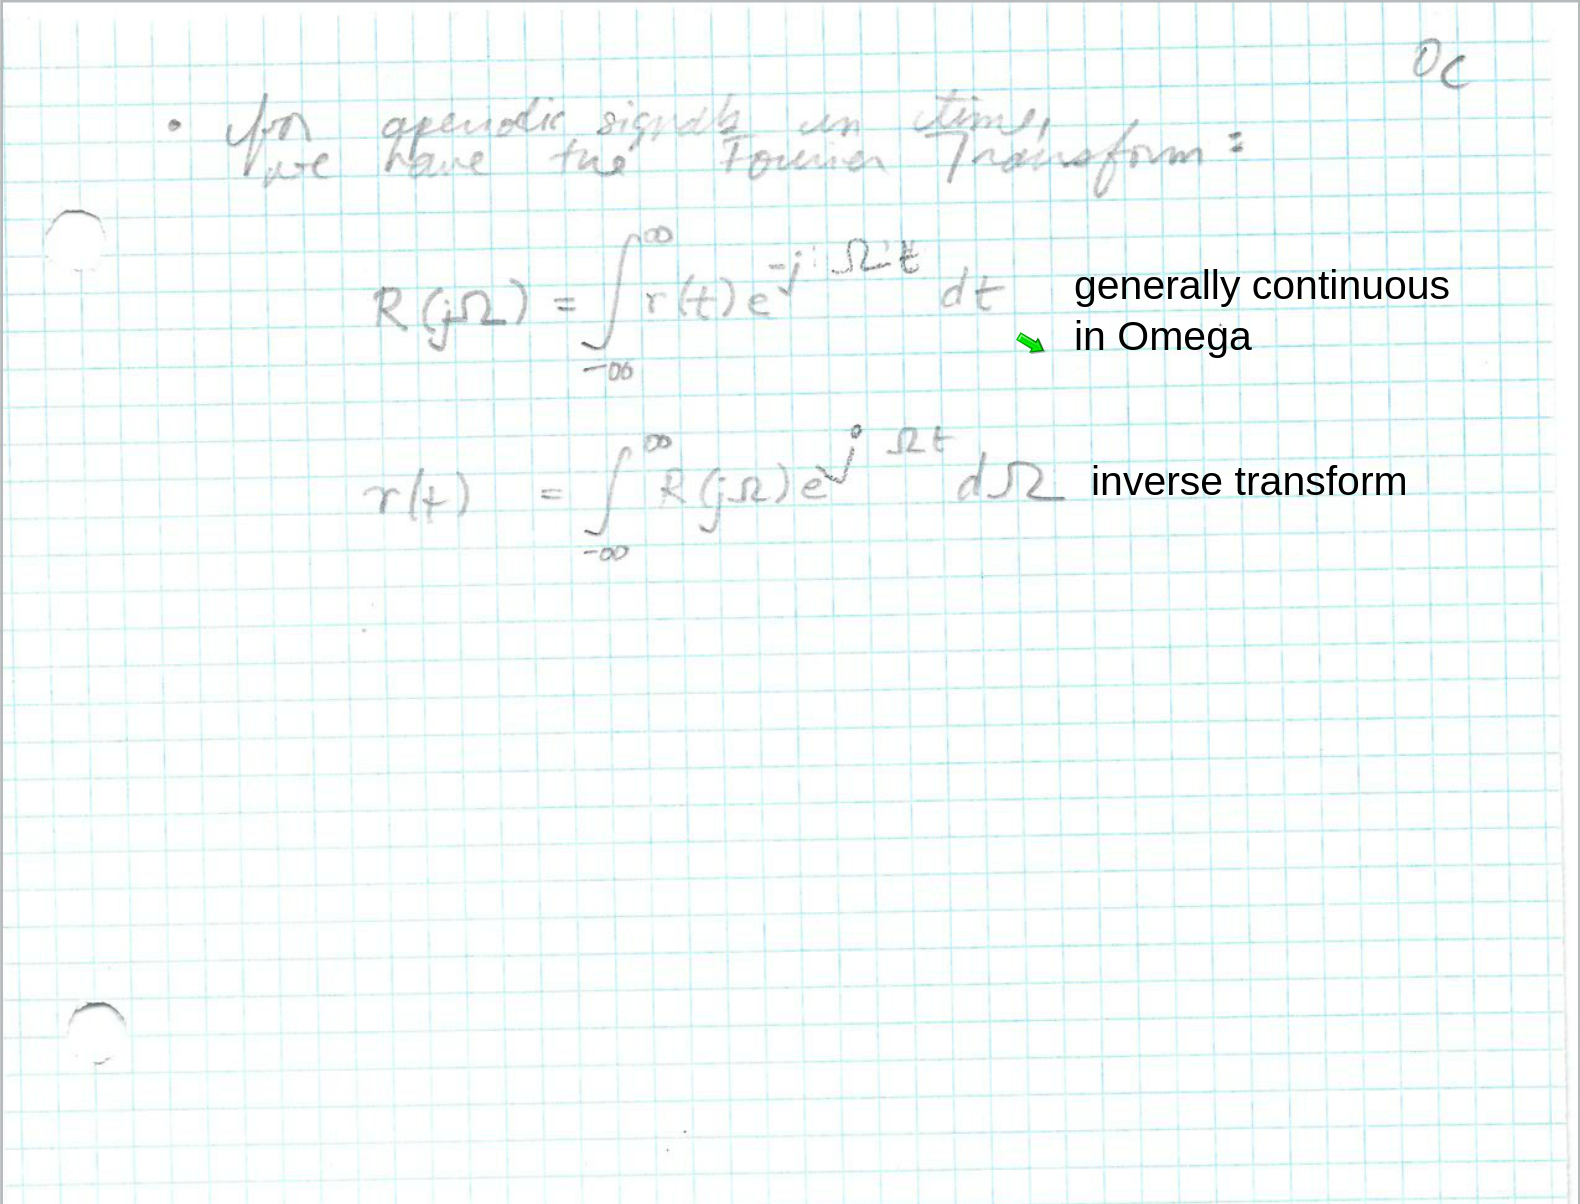 0c
• for aperiodic signals in time,
we have the Fourier Transform:
R(jΩ) = ∫_{-∞}^{∞} r(t) e^{-jΩt} dt
generally continuous
in Omega
r(t) = ∫_{-∞}^{∞} R(jΩ) e^{jΩt} dΩ
inverse transform